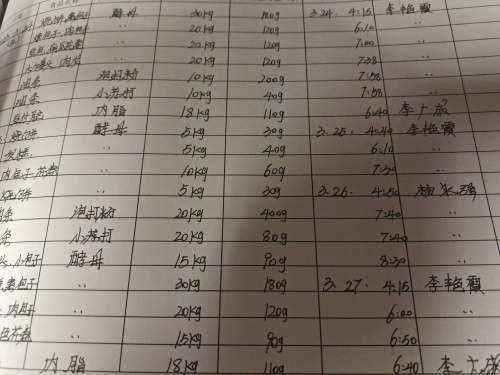 酵母 30kg 180g 3.24. 4:15 李艳霞
〃 20kg 120g 6:10 〃
〃 20kg 120g 7:00 〃
〃 20kg 120g 7:38 〃
油条 泡打粉 10kg 200g 7:58 〃
油条 小苏打 10kg 40g 7:58 〃
内脂 18kg 110g 6:40 李广成
酵母 5kg 30g 3.25. 4:40 李艳霞
〃 5kg 40g 6:10 〃
〃 10kg 60g 7:30 〃
〃 5kg 30g 3.26. 4:50
条 泡打粉 20kg 400g 7:40 〃
条 小苏打 20kg 80g 7:40 〃
小包子 酵母 15kg 90g 8:30 〃
包子 〃 30kg 180g 3.27. 4:15 李艳霞
肉包子 〃 20kg 120g 6:00 〃
〃 15kg 90g 6:50 〃
内脂 18kg 110g 6:40 李广成